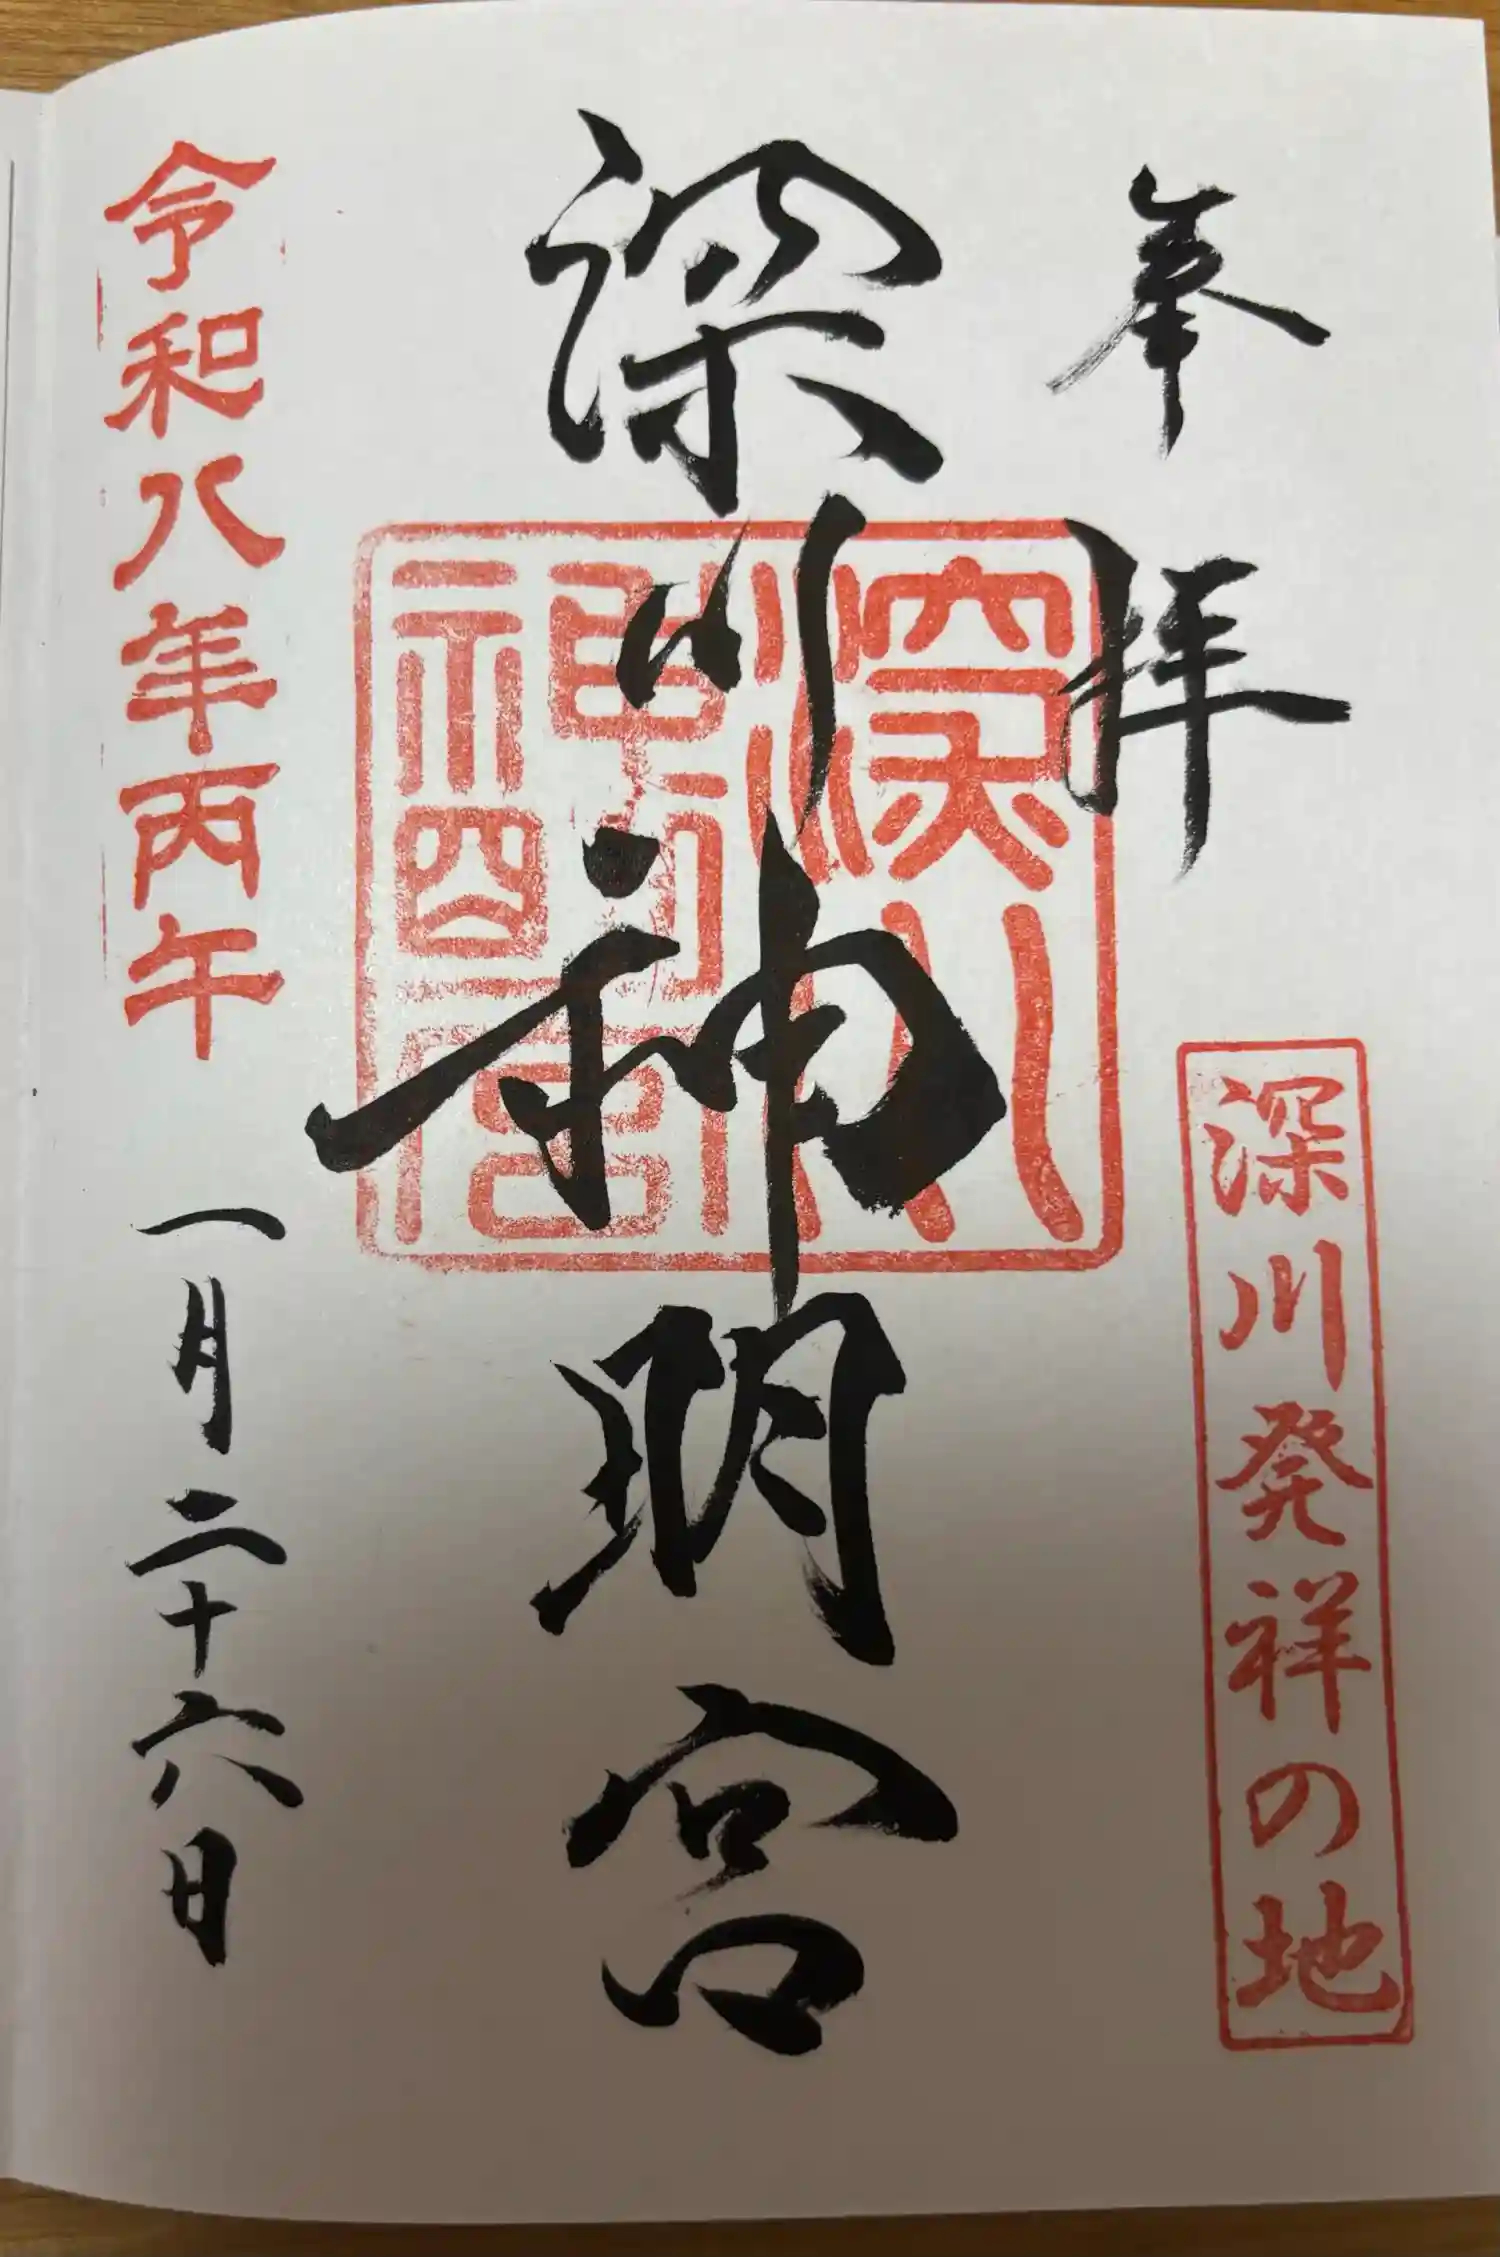 奉拝
深川発祥の地
深川神明宮
深川
神明
宮
令和八年丙午
一月二十六日